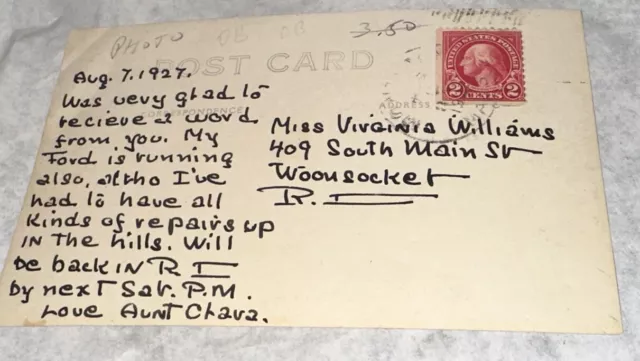 PHOTO
3.50
POST CARD
CORRESPONDENCE
ADDRESS
UNITED STATES POSTAGE
2 CENTS 2
Aug. 7. 1927.
Was very glad to
recieve a word
from you. My
Ford is running
also, altho I've
had to have all
kinds of repairs up
in the hills. Will
be back in R I
by next Sat. P.M.
Love Aunt Clara.
Miss Virginia Williams
409 South Main St
Woonsocket
R. I